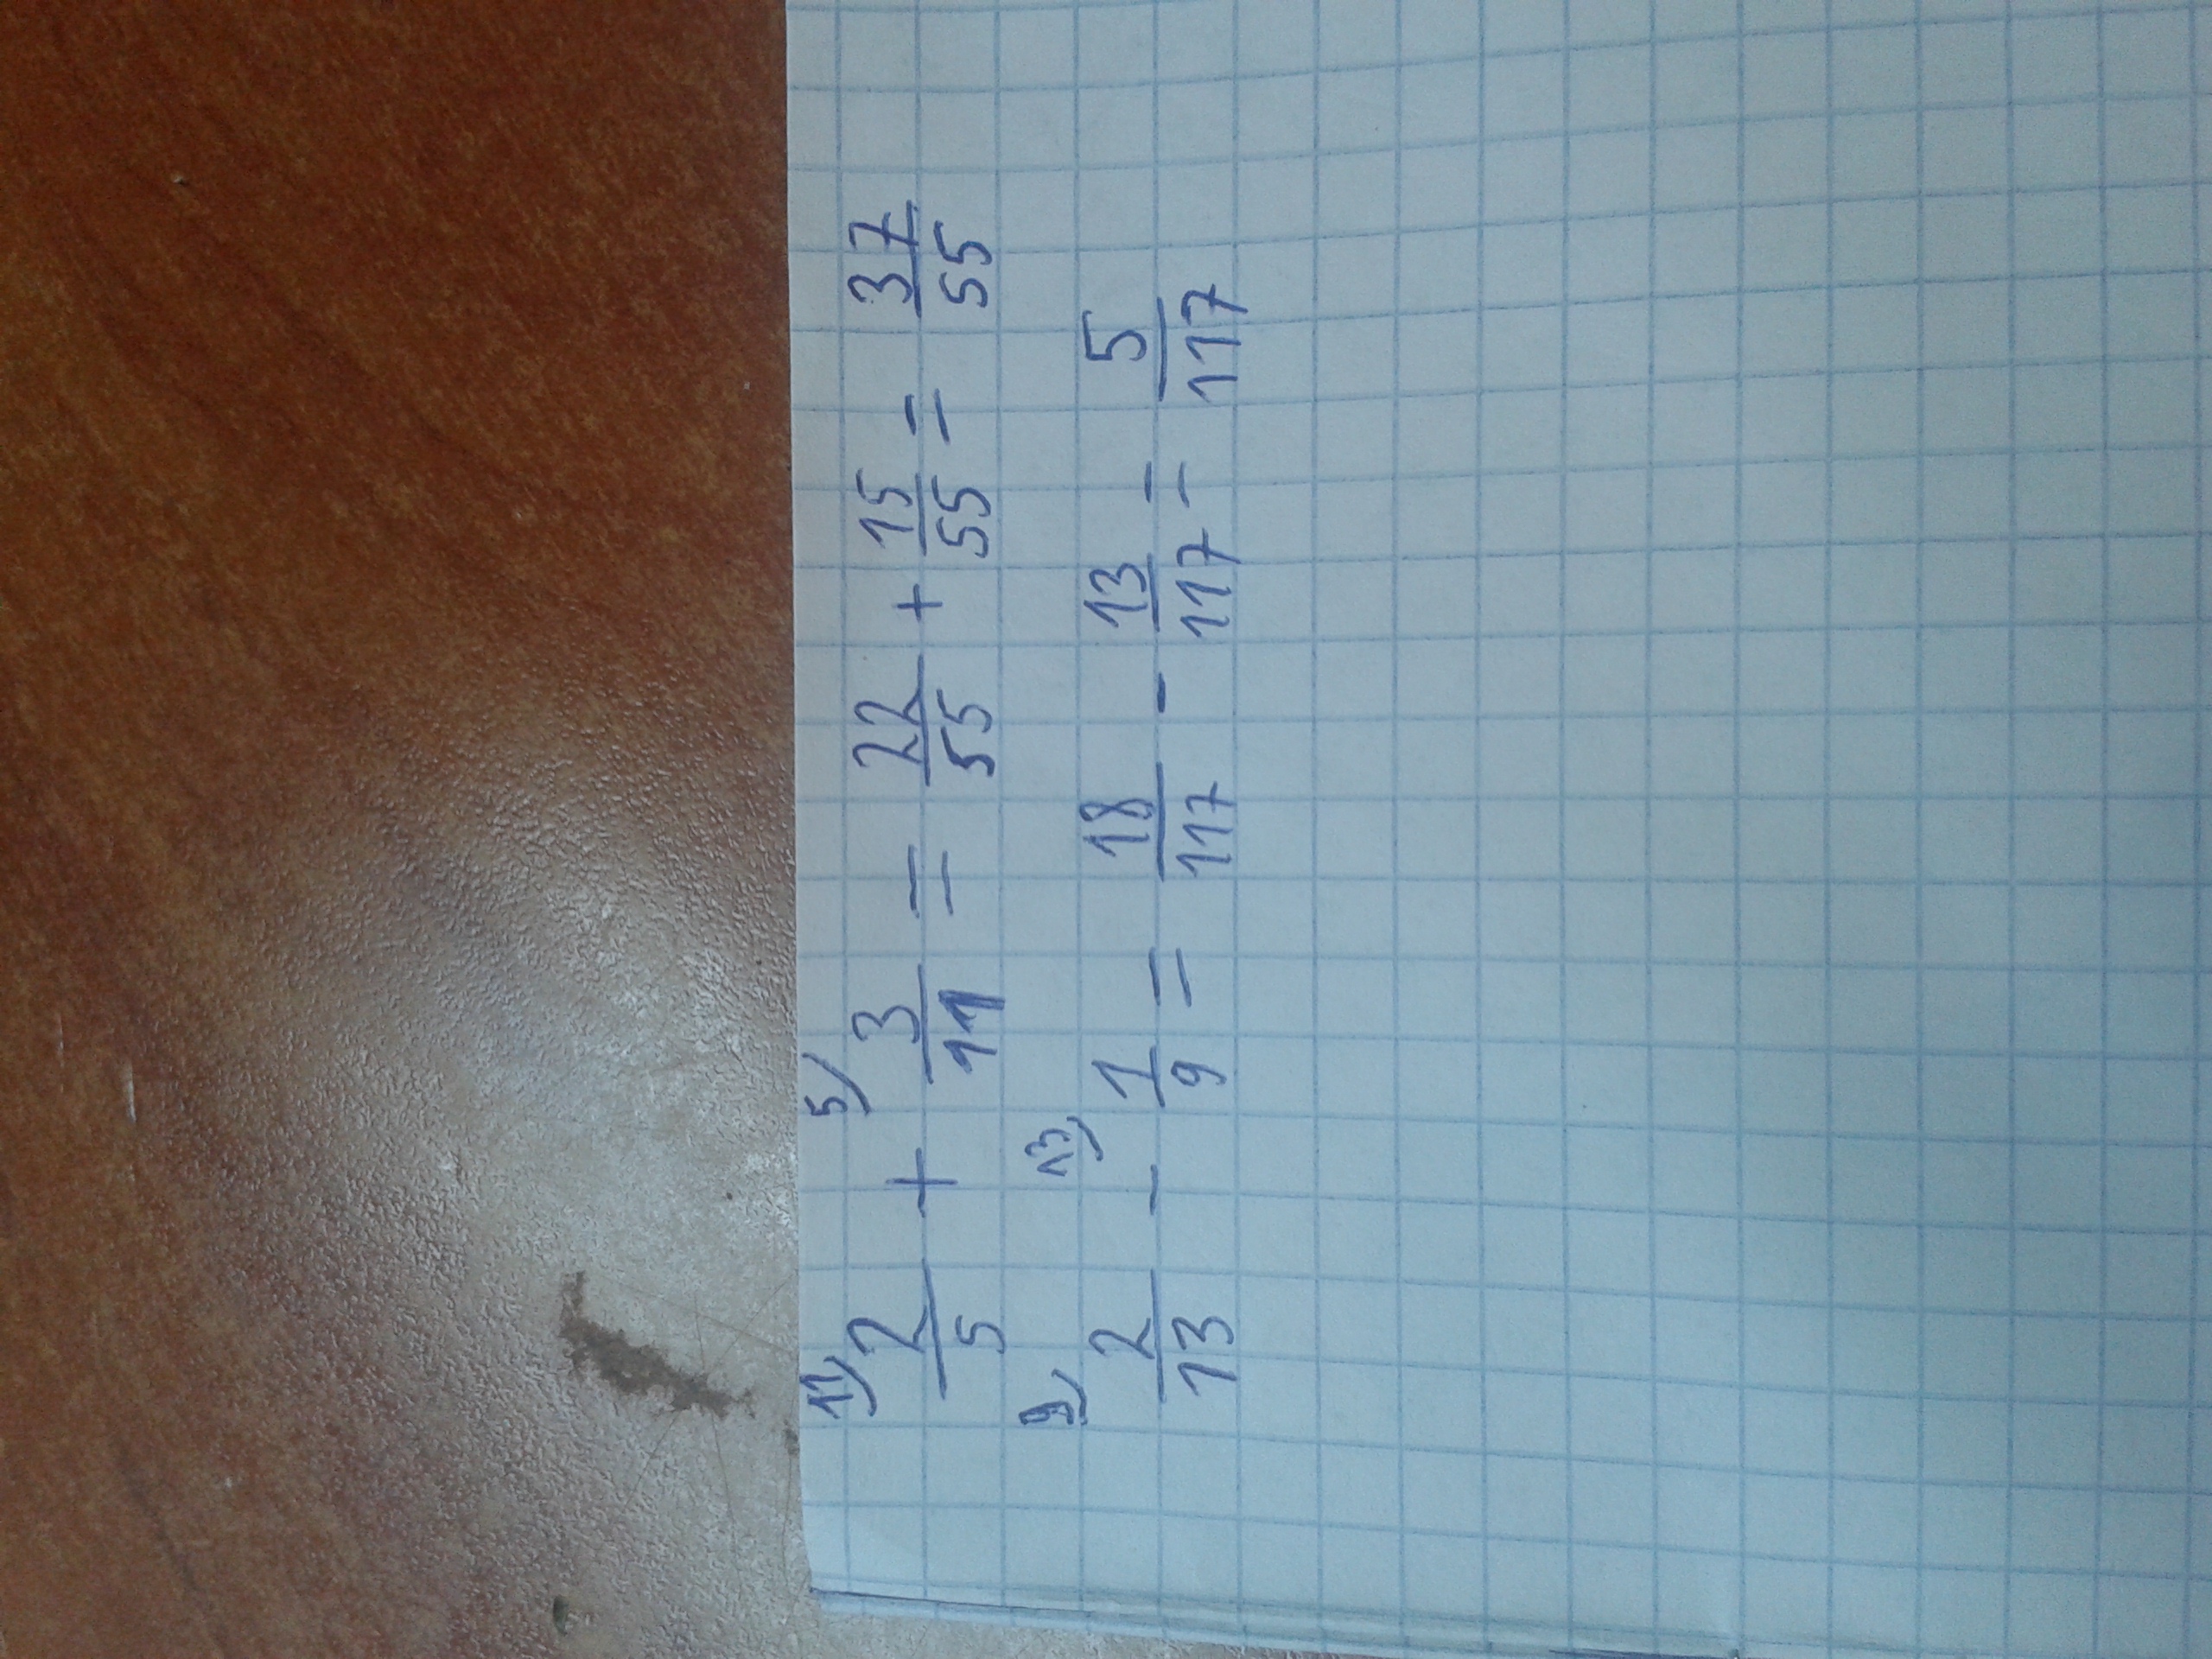 11) 2/5 + 5) 3/11 = 22/55 + 15/55 = 37/55
9) 2/13 - 13) 1/9 = 18/117 - 13/117 = 5/117